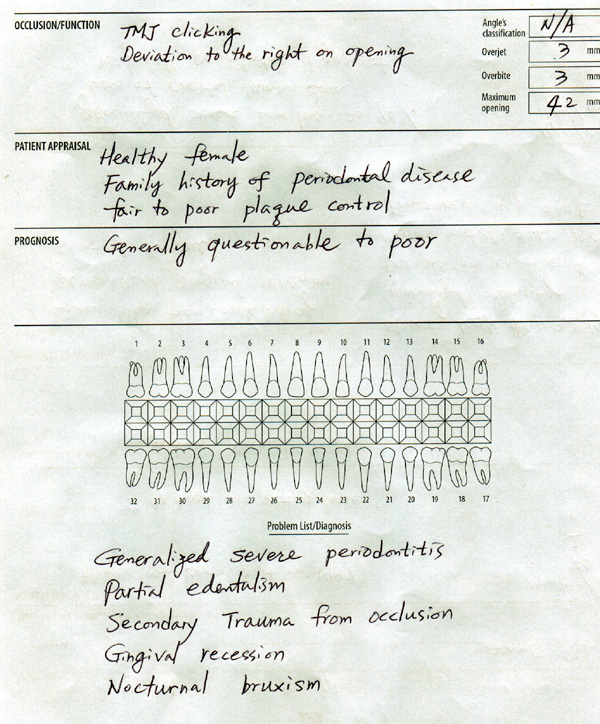 OCCLUSION/FUNCTION
TMJ clicking
Deviation to the right on opening
Angle's classification N/A
Overjet 3 mm
Overbite 3 mm
Maximum opening 42 mm
PATIENT APPRAISAL
Healthy female
Family history of periodontal disease
fair to poor plaque control
PROGNOSIS
Generally questionable to poor
1 2 3 4 5 6 7 8 9 10 11 12 13 14 15 16
32 31 30 29 28 27 26 25 24 23 22 21 20 19 18 17
Problem List/Diagnosis
Generalized severe periodontitis
Partial edentulism
Secondary Trauma from occlusion
Gingival recession
Nocturnal bruxism